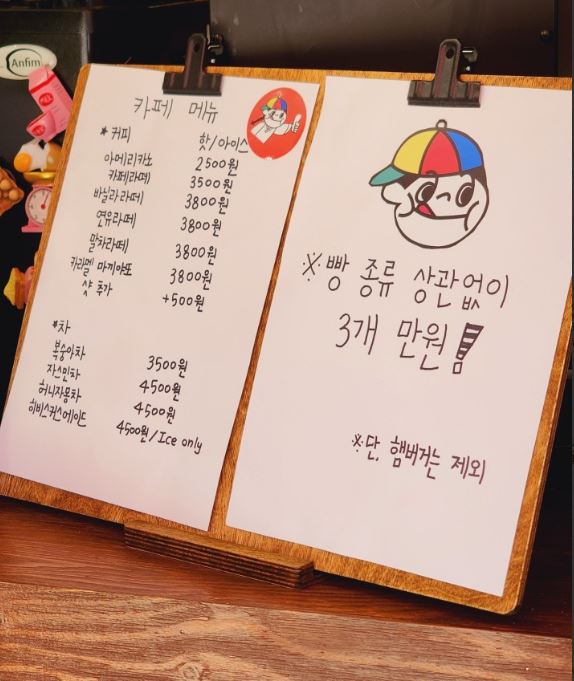 Anfim
카페 메뉴
* 커피 핫/아이스
아메리카노 2500원
카페라떼 3500원
바닐라라떼 3800원
연유라떼 3800원
말차라떼 3800원
카라멜 마끼야또 3800원
샷 추가 +500원
*차
복숭아차 3500원
자스민차 4500원
허니자몽차 4500원
히비스커스에이드 4500원/Ice only
※빵 종류 상관없이
3개 만원!
※단, 햄버거는 제외